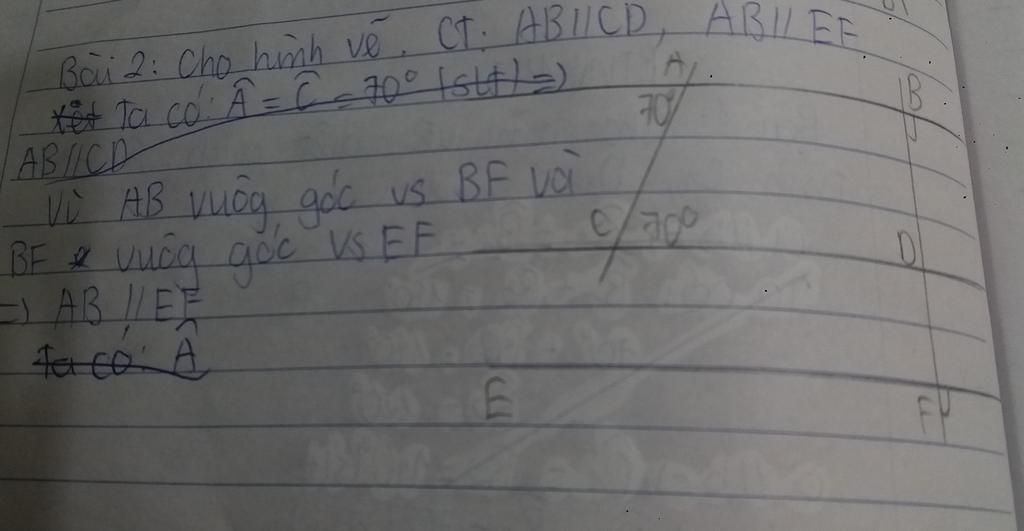 Bài 2: Cho hình vẽ. CT: AB//CD, AB//EF
xét Ta có: Â = Ĉ = 70° (slt) =)
AB//CD
Vì AB vuôg góc vs BF và
BF vuôg góc vs EF
=) AB // EF
Ta có: Â
A
B
70°
C
70°
D
E
F